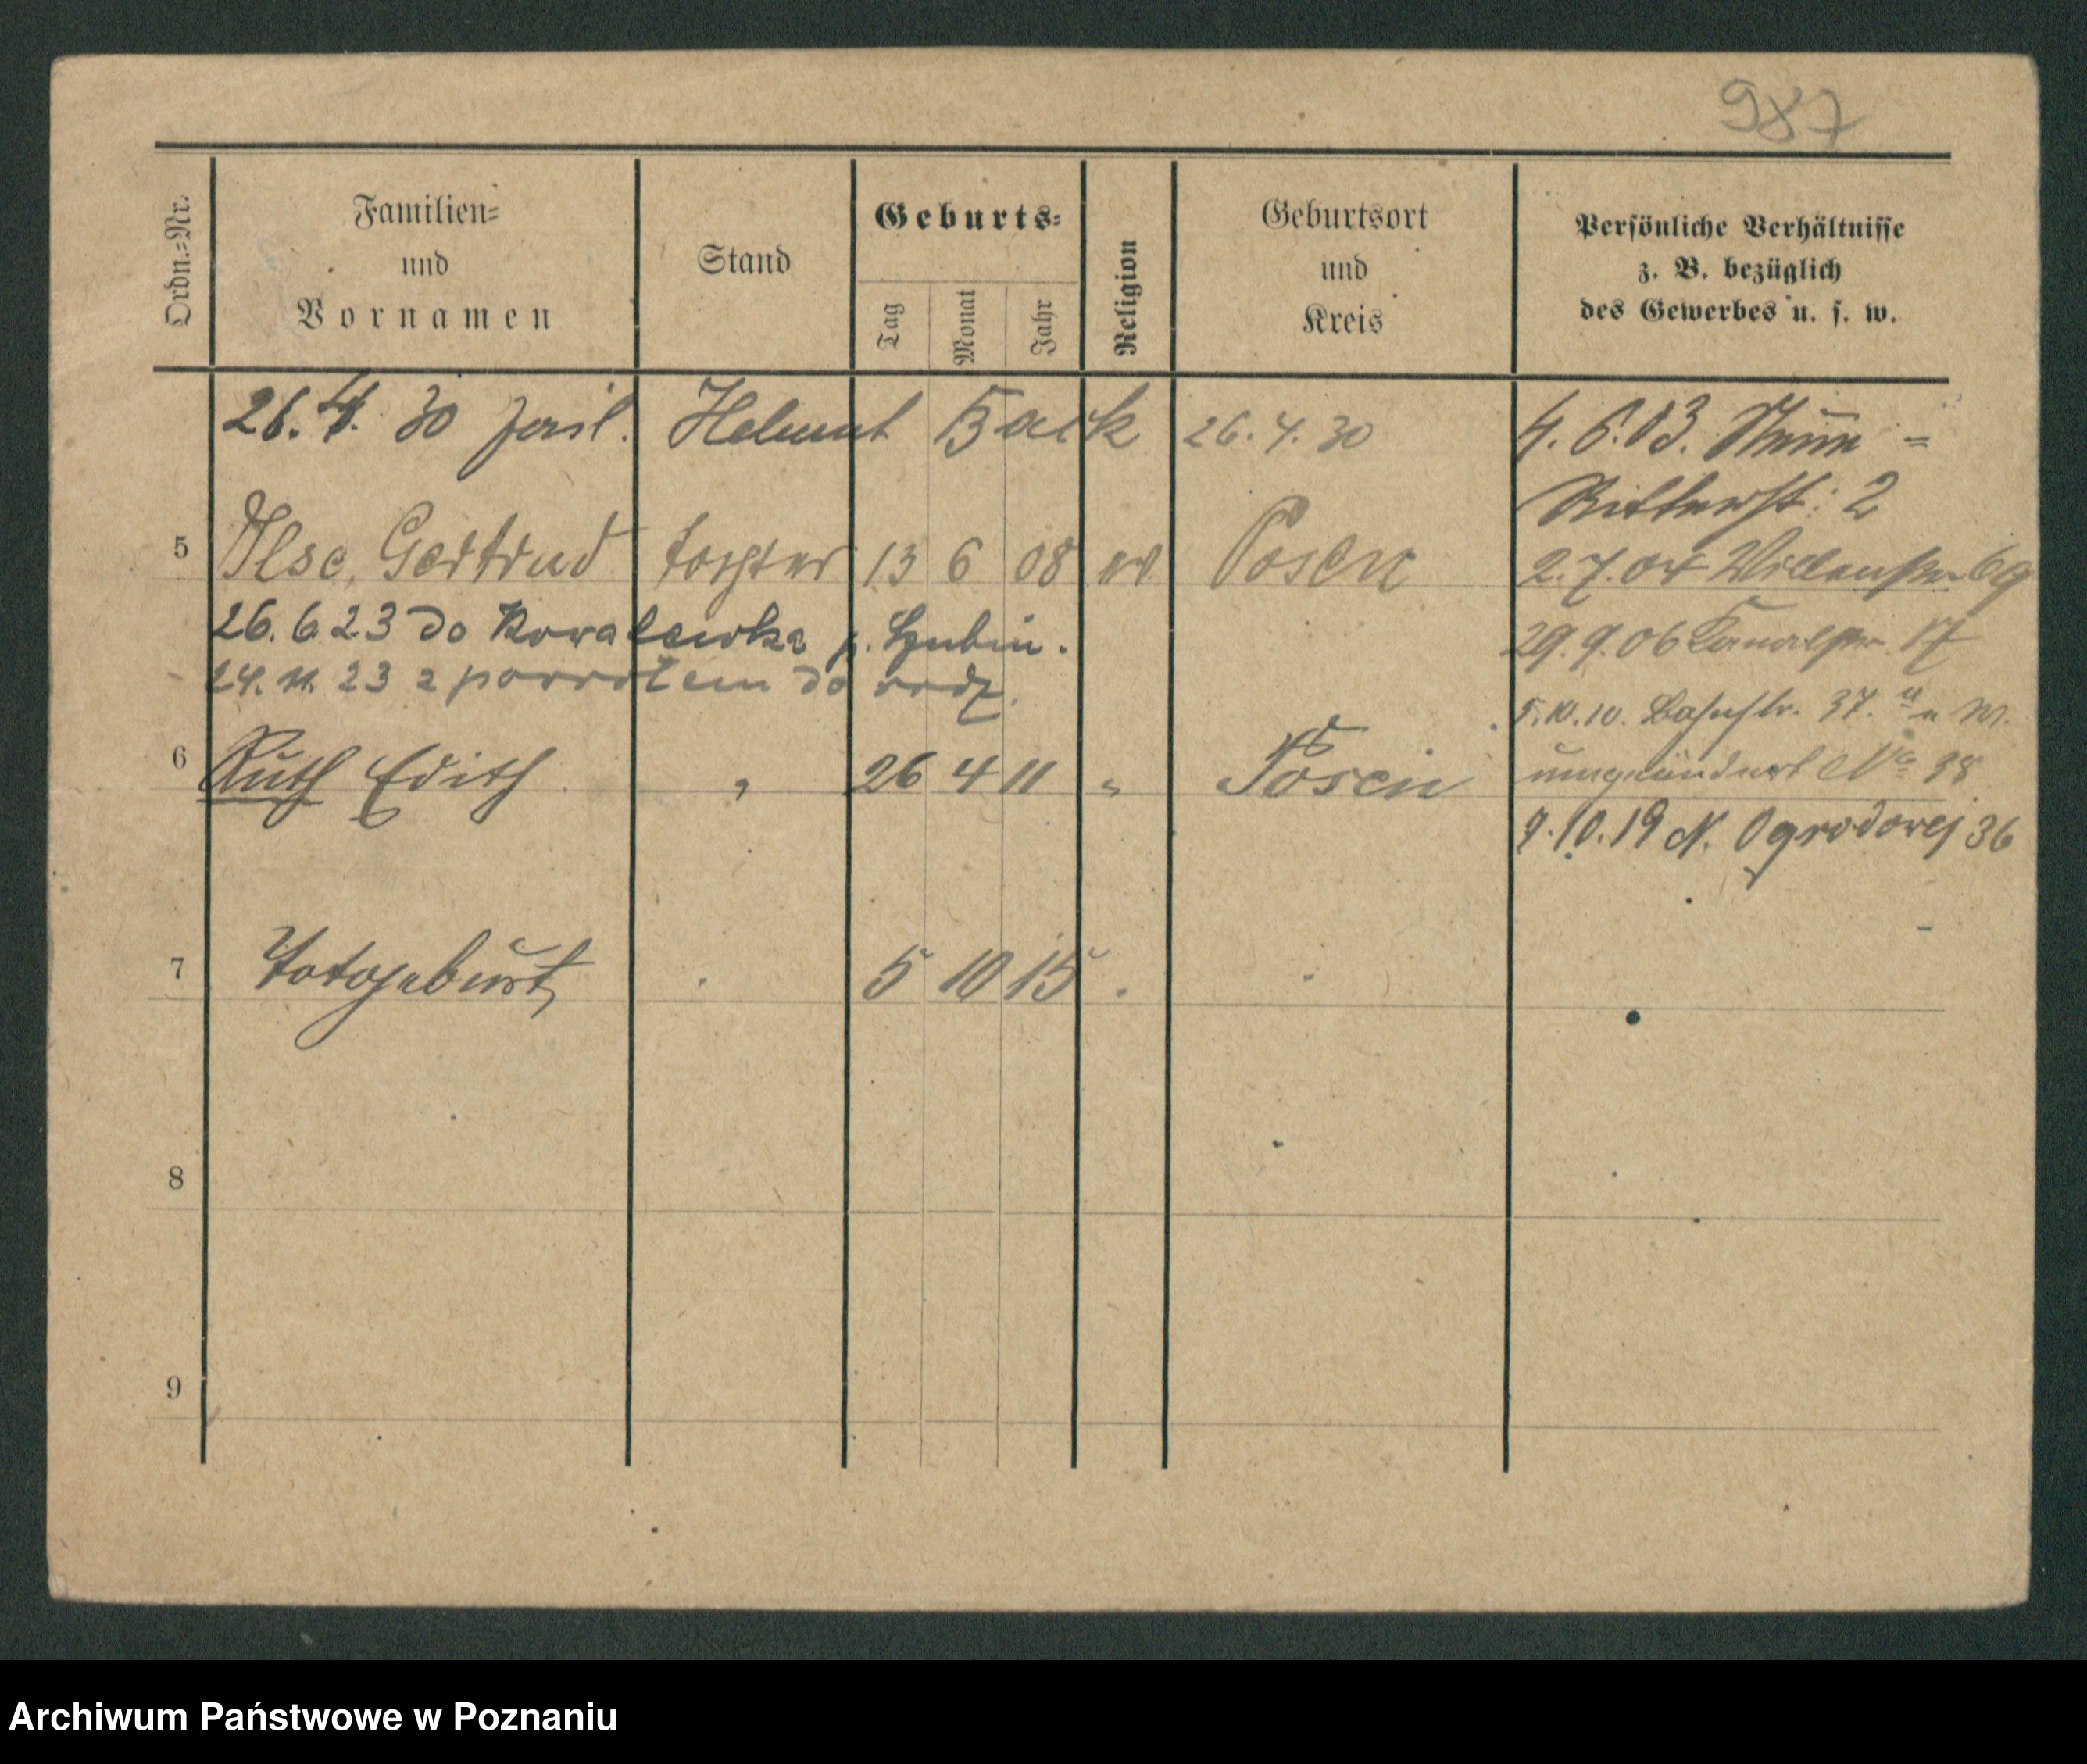 987
Ordn.=Nr.
Familien=
und
Vornamen
Stand
Geburts=
Tag
Monat
Jahr
Religion
Geburtsort
und
Kreis
Persönliche Verhältnisse
z. B. bezüglich
des Gewerbes u. s. w.
26. 4. 30 Helmut Back 26. 4. 30
4. 6. 03.
Ritterst: 2
5 Ilse, Gertrud Tochter 13 6 08 ev Posen
2. 7. 04 69
26. 6 23 do Kowalewka p. Szubin.
29. 9. 06 Kanalstr. 17
24. 11. 23 z powrotem do rodz.
5. 10. 10. Bahnstr. 37.
6 Ruth Edith " 26 4 11 " Posen
umgeändert No 38
9. 10. 19 N. Ogrodowej 36
7 Totgeburt 5 10 15
8
9
Archiwum Państwowe w Poznaniu